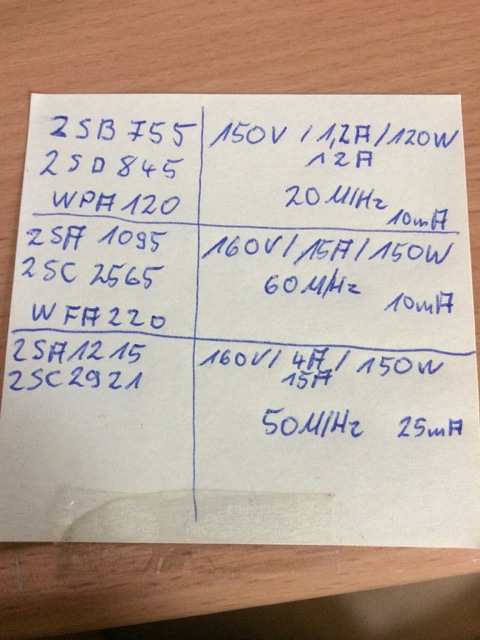 2SB 755
2SD 845
WPA 120
150V / 1,2A / 120W
12A
20 MHz
10mA
2SA 1095
2SC 2565
WFA 220
160V / 15A / 150W
60MHz
10mA
2SA1215
2SC2921
160V / 4A / 150W
15A
50MHz 25mA